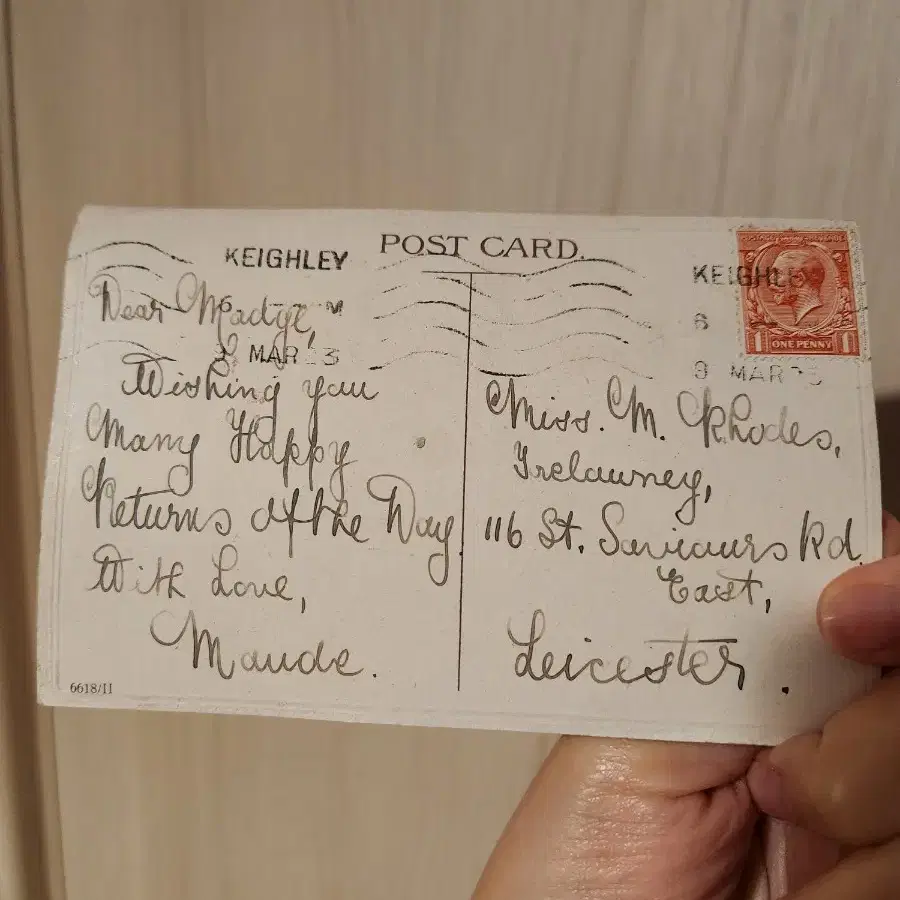 POST CARD.
KEIGHLEY
MAR
KEIGHLEY
6
9 MAR
ONE PENNY
1 1
Dear Madge,
Wishing you
Many Happy
Returns of the Day.
With Love,
Maude.
6618/11
Miss. M. Rhodes,
Trelawney,
116 St. Saviours Rd.
East,
Leicester.